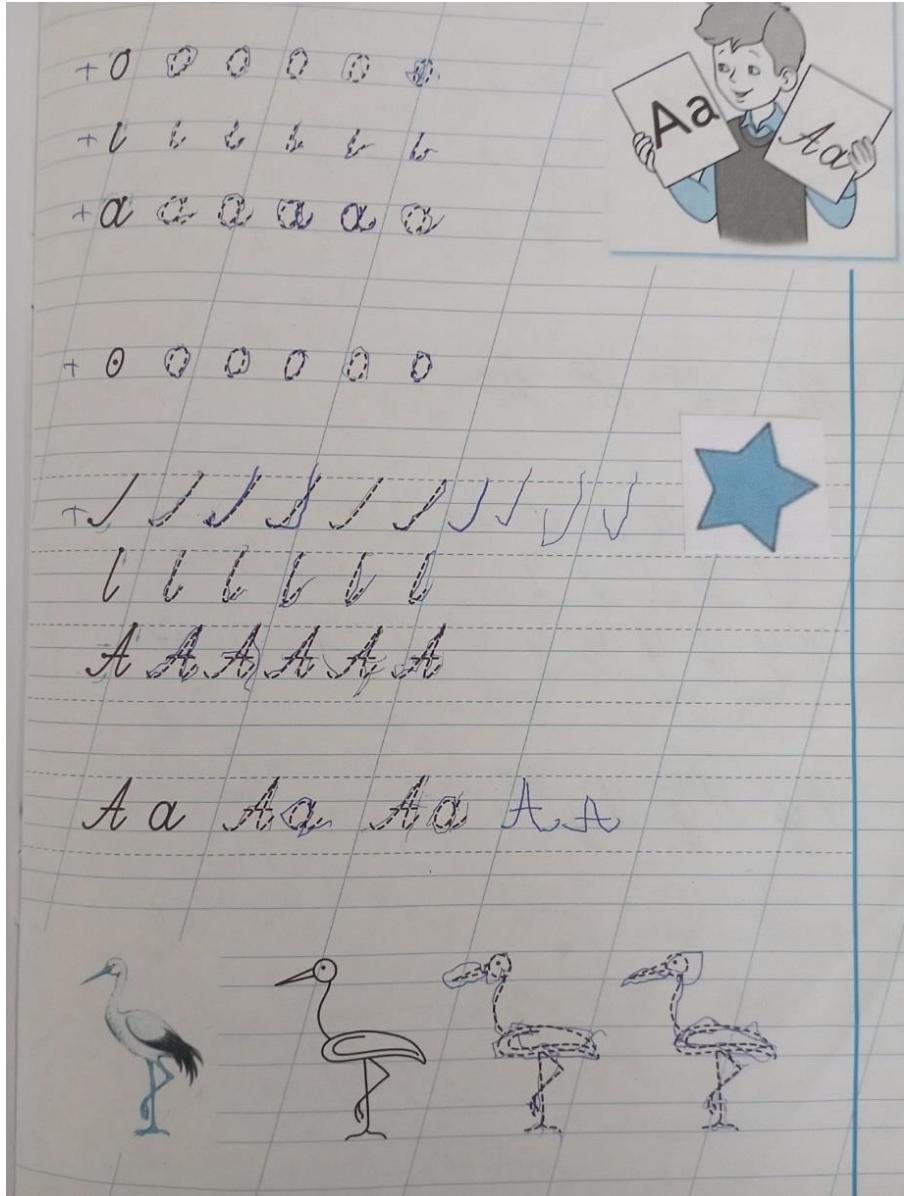 Аа Аа
+ о о о о о о
+
+ а а а а а а
+ о о о о о о
+
А А А А А А
А а А а А а А А